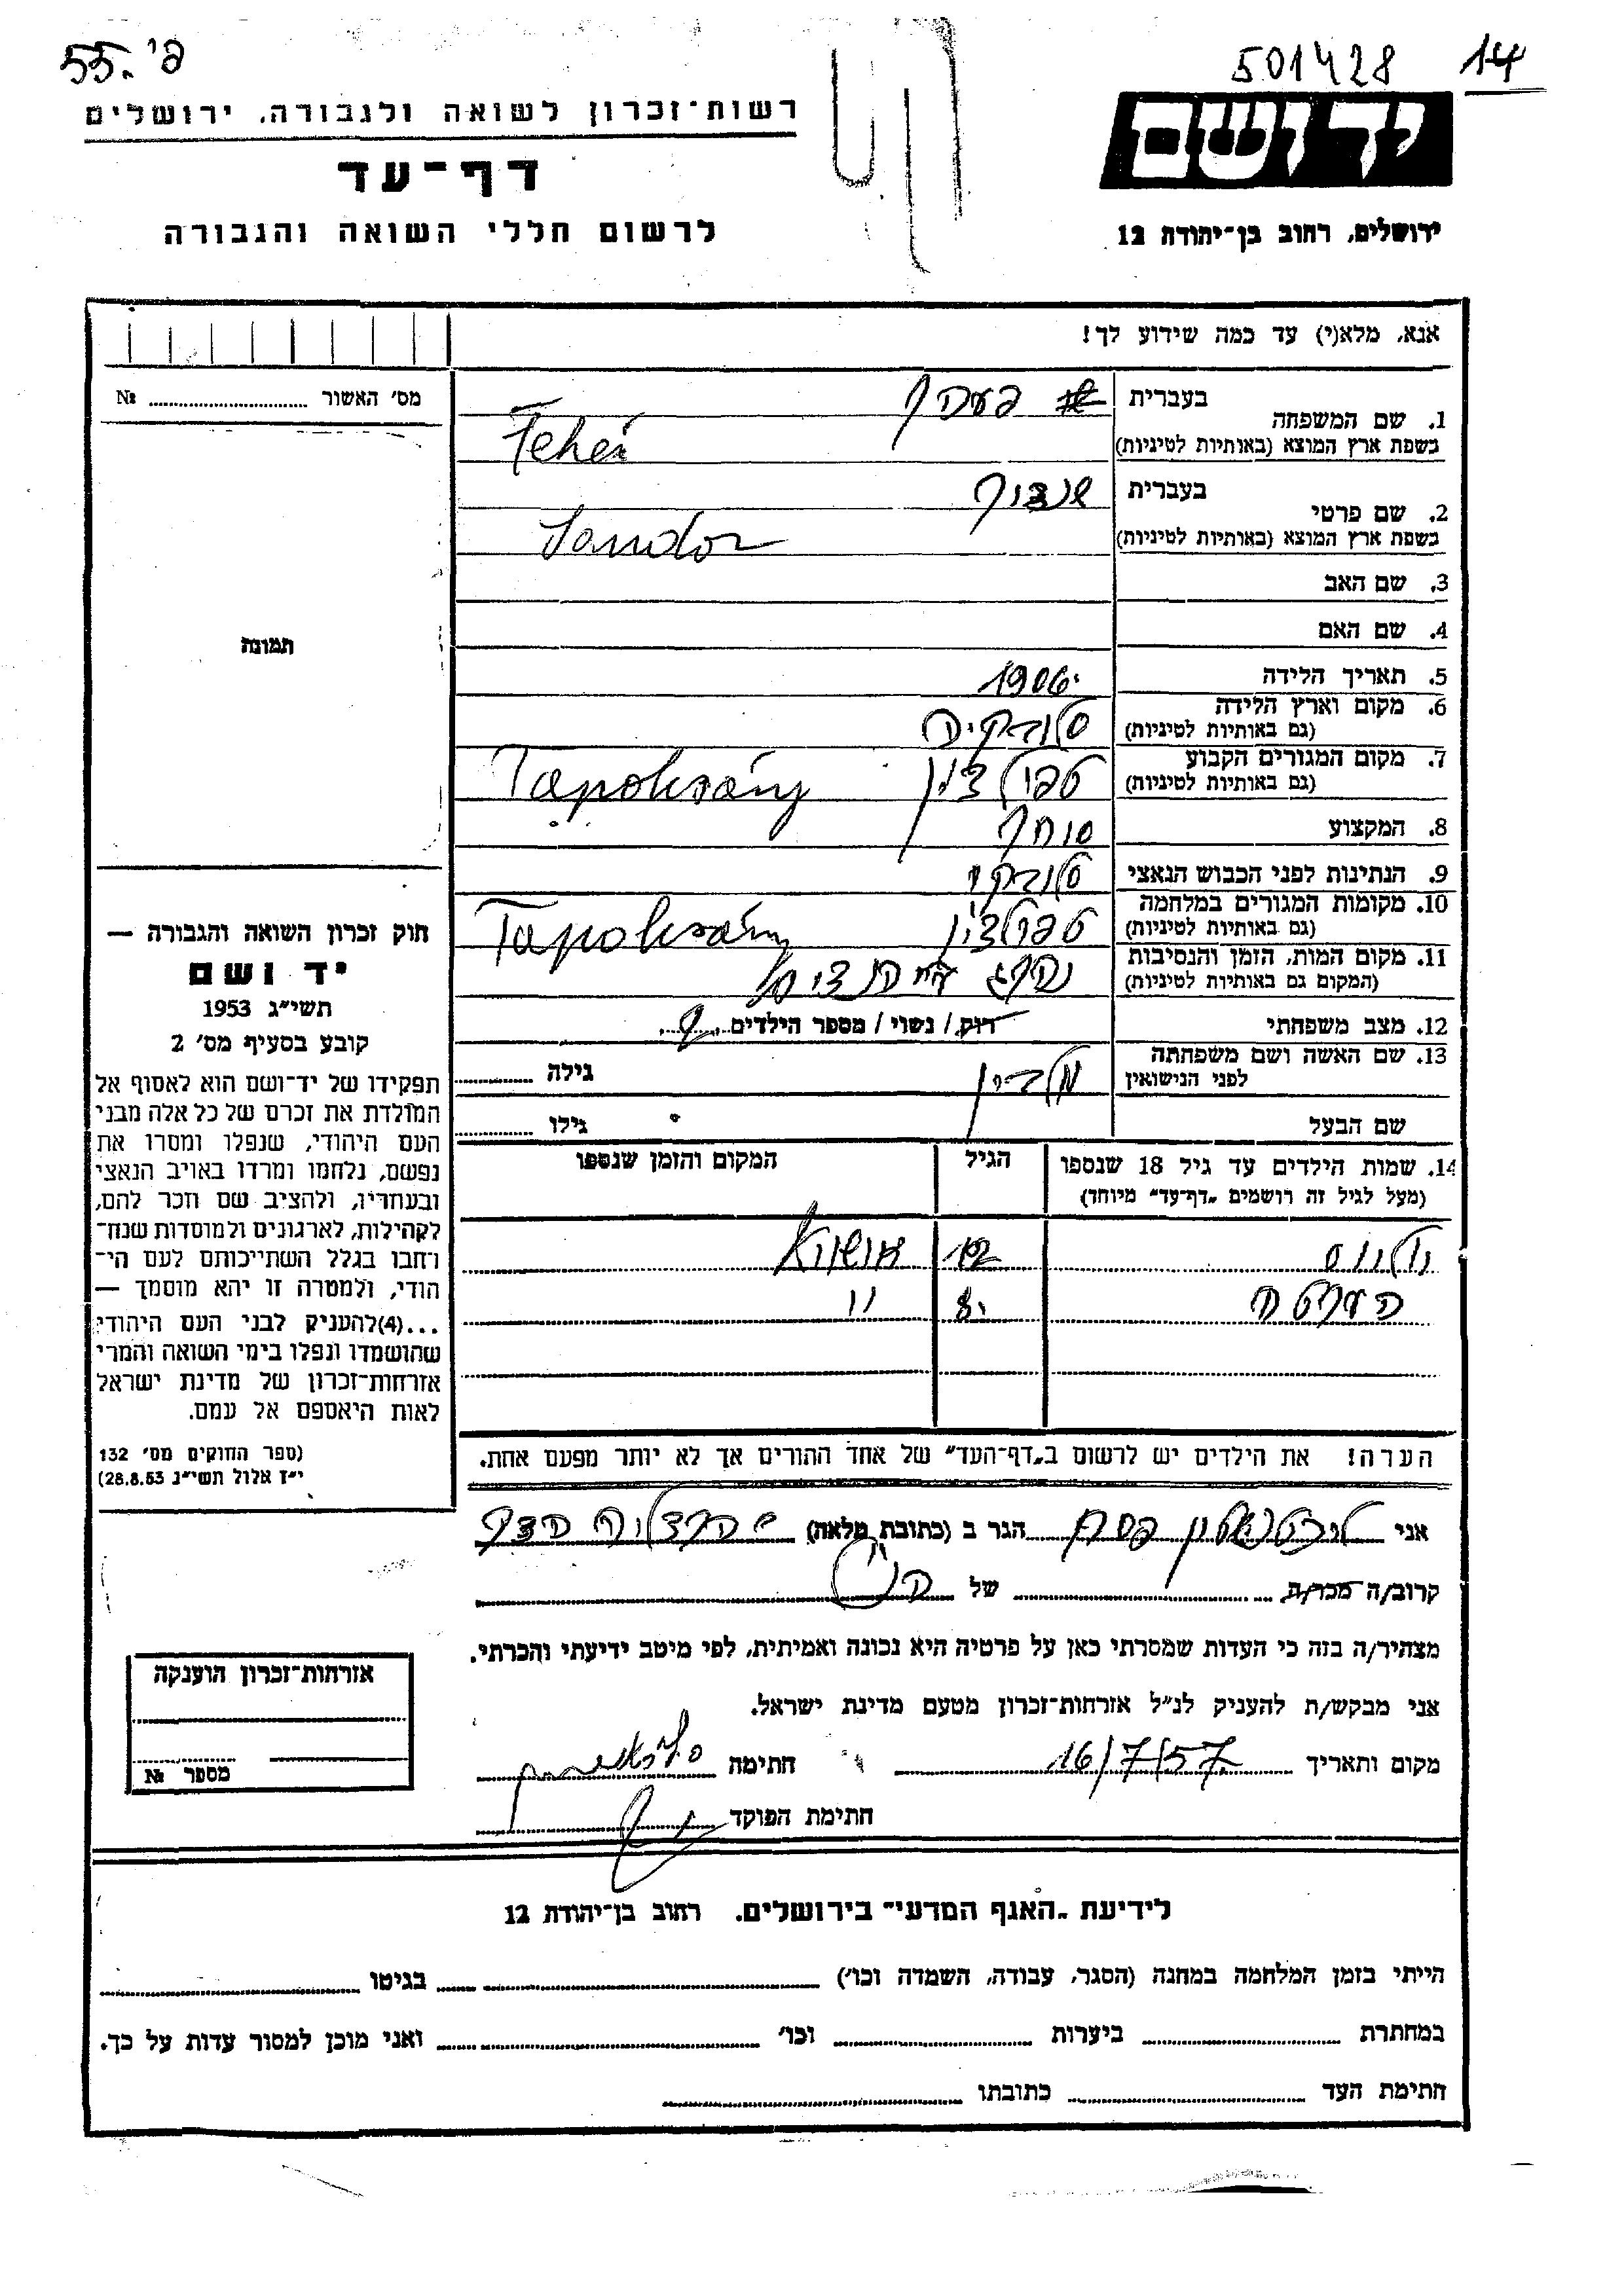 פ' .55
501428 14
רשות-זכרון לשואה ולגבורה, ירושלים
ידושם
דף-עד
לרשום חללי השואה והגבורה
ירושלים, רחוב בן-יהודה 12
אנא, מלא(י) עד כמה שידוע לך!
מס' האשור № 
1. שם המשפחה בעברית
Fehér
בשפת ארץ המוצא (באותיות לטיניות)
2. שם פרטי בעברית
Sandor
בשפת ארץ המוצא (באותיות לטיניות)
3. שם האב
4. שם האם
תמונה
5. תאריך הלידה 1906
6. מקום וארץ הלידה
(גם באותיות לטיניות)
7. מקום המגורים הקבוע Tapolcsány
(גם באותיות לטיניות)
8. המקצוע סוחר
9. הנתינות לפני הכבוש הנאצי
10. מקומות המגורים במלחמה Tapolcsány
(גם באותיות לטיניות)
11. מקום המות, הזמן והנסיבות
(המקום גם באותיות לטיניות)
12. מצב משפחתי רוק / נשוי / מספר הילדים
13. שם האשה ושם משפחתה
לפני הנישואין
גילה
שם הבעל גילו
14. שמות הילדים עד גיל 18 שנספו הגיל המקום והזמן שנספו
(מעל לגיל זה רושמים „דף-עד" מיוחד)
12
8 "
הערה! את הילדים יש לרשום ב„דף-העד" של אחד ההורים אך לא יותר מפעם אחת.
חוק זכרון השואה והגבורה —
יד ושם
תשי"ג 1953
קובע בסעיף מס' 2
תפקידו של יד-ושם הוא לאסוף אל
המולדת את זכרם של כל אלה מבני
העם היהודי, שנפלו ומסרו את
נפשם, נלחמו ומרדו באויב הנאצי
ובעוזריו, ולהציב שם וזכר להם,
לקהילות, לארגונים ולמוסדות שנח-
רחבו בגלל השתייכותם לעם הי-
הודי, ולמטרה זו יהא מוסמך —
...(4) להעניק לבני העם היהודי
שהושמדו ונפלו בימי השואה והמרי
אזרחות-זכרון של מדינת ישראל
לאות היאספם אל עמם.
(ספר החוקים מס' 132
י"ז אלול תשי"ג 28.8.53)
אני הגר ב (כתובת מלאה)
קרוב/ה מכר/ה של
מצהיר/ה בזה כי העדות שמסרתי כאן על פרטיה היא נכונה ואמיתית, לפי מיטב ידיעתי והכרתי.
אני מבקש/ת להעניק לנ"ל אזרחות-זכרון מטעם מדינת ישראל.
מקום ותאריך 16/7/57 חתימה
חתימת הפוקד
אזרחות-זכרון הוענקה
מספר №
לידיעת „האגף המדעי" בירושלים. רחוב בן-יהודה 12
הייתי בזמן המלחמה במחנה (הסגר, עבודה, השמדה וכו') בגיטו
במחתרת ביערות וכו' ואני מוכן למסור עדות על כך.
חתימת העד כתובתו